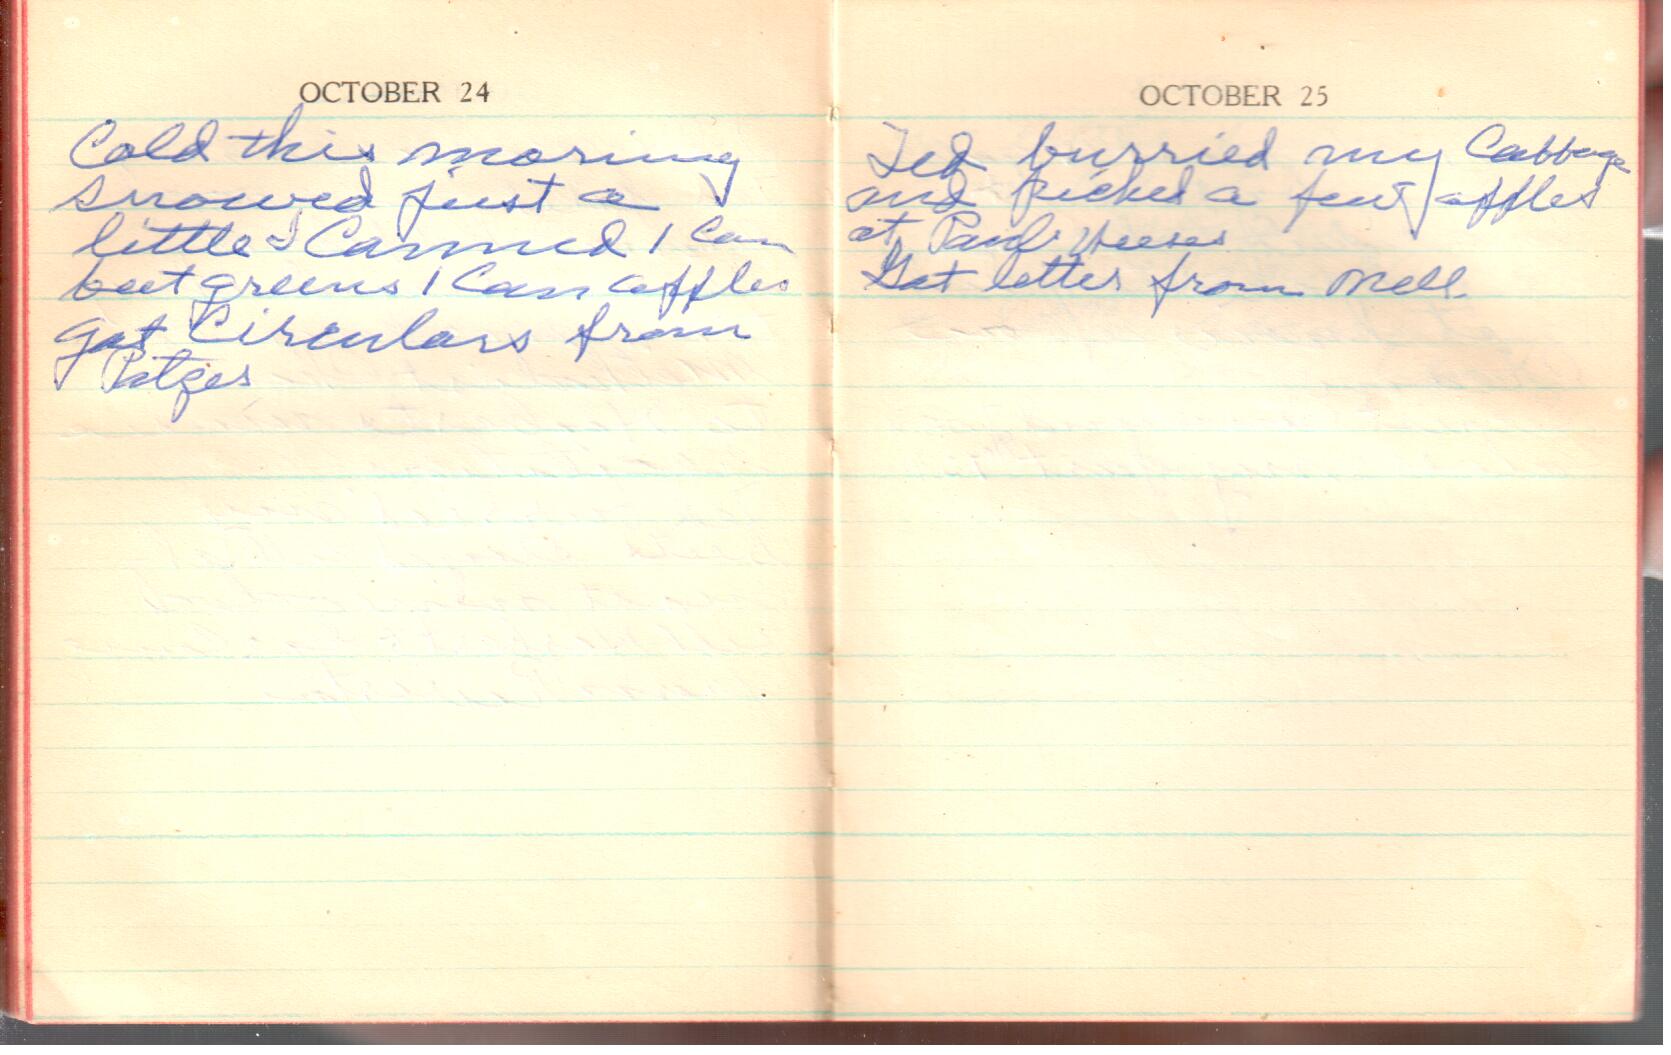 OCTOBER 24
Cold this moring
snowed just a
little I Canned 1 Can
beet greens 1 Can apples
got Circulars from
OCTOBER 25
Ted burried my Cabbage
and picked a few apples
at Paul
Got letter from Mell.